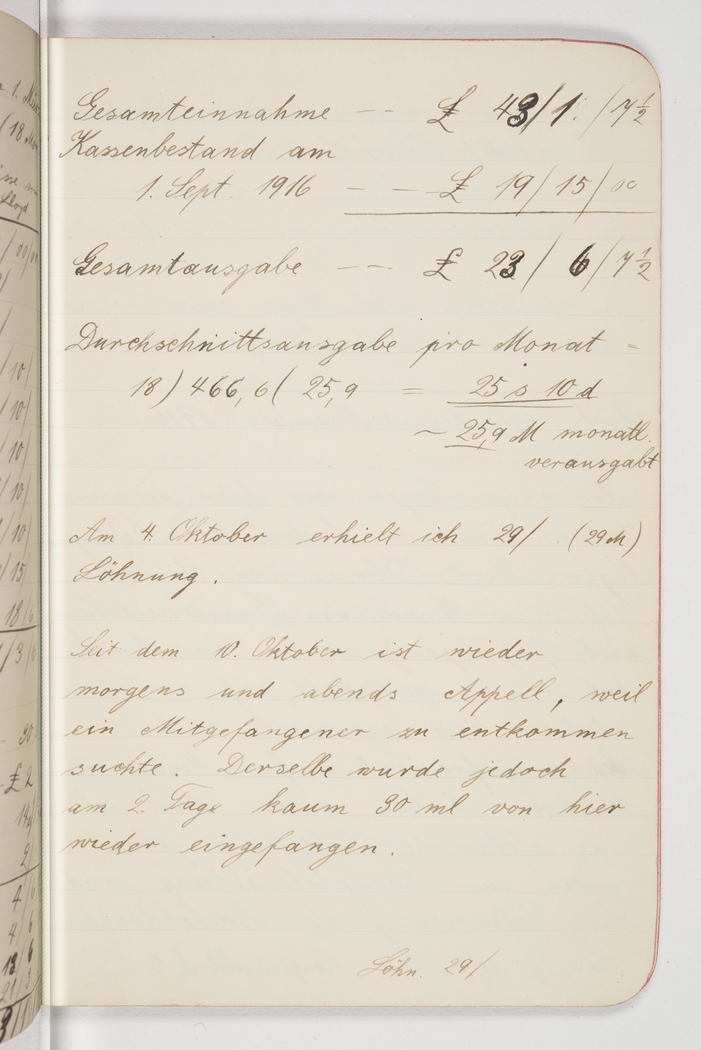 Gesamteinnahme -- £ 43/1./7½
Kassenbestand am
1. Sept. 1916 - - £ 19/15/00
Gesamtausgabe -- £ 23/6/7½
Durchschnittsausgabe pro Monat =
18) 466,6 ( 25,9 = 25 s 10 d
~ 25,9 M monatl.
verausgabt
Am 4. Oktober erhielt ich 29/ (29 M)
Löhnung.
Seit dem 10. Oktober ist wieder
morgens und abends Appell, weil
ein Mitgefangener zu entkommen
suchte. Derselbe wurde jedoch
am 2. Tage kaum 30 ml von hier
wieder eingefangen.
Löhn. 29/